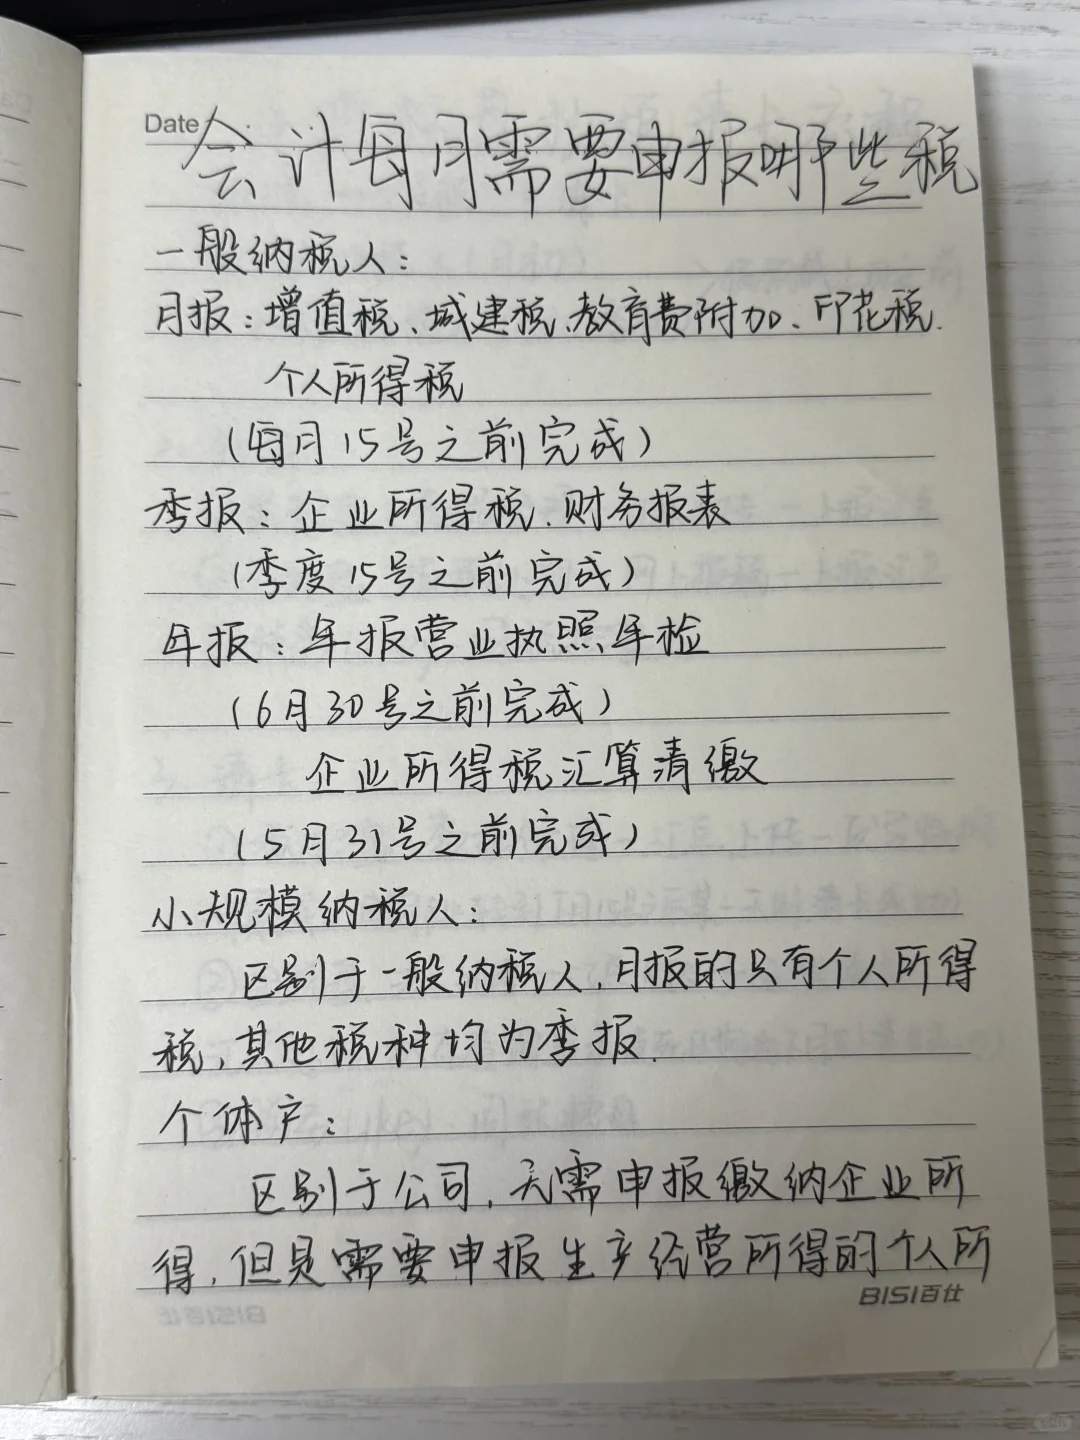 Date
会计每月需要申报哪些税
一般纳税人：
月报：增值税、城建税、教育费附加、印花税、
个人所得税
（每月15号之前完成）
季报：企业所得税、财务报表
（季度15号之前完成）
年报：年报营业执照年检
（6月30号之前完成）
企业所得税汇算清缴
（5月31号之前完成）
小规模纳税人：
区别于一般纳税人，月报的只有个人所得
税，其他税种均为季报.
个体户：
区别于公司，无需申报缴纳企业所
得，但是需要申报生产经营所得的个人所
BISI百仕